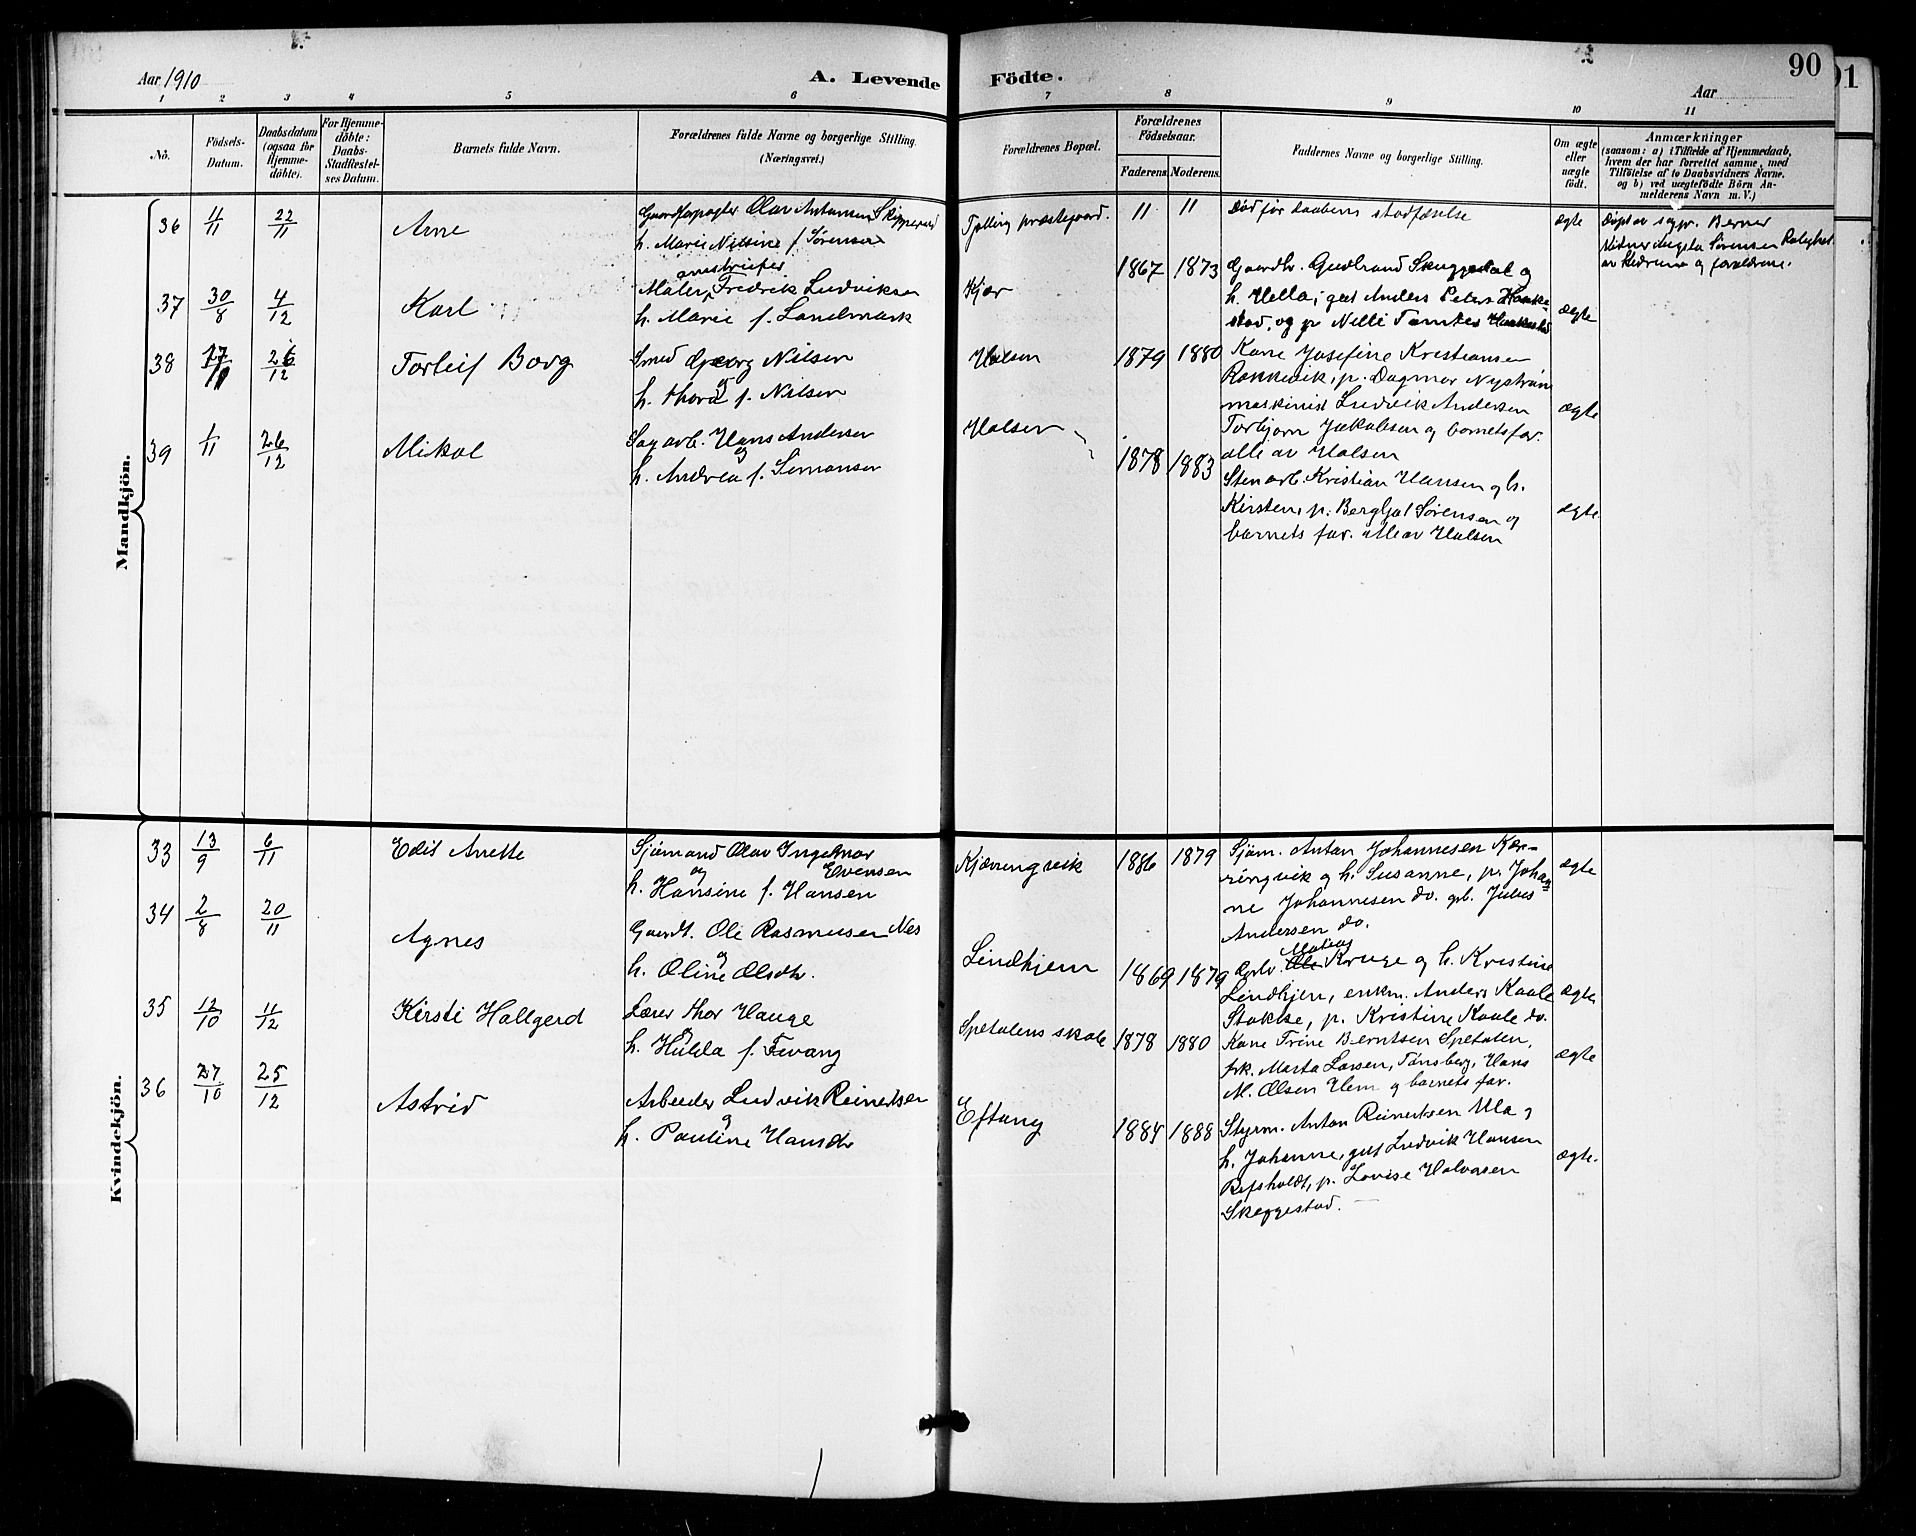 Aar 1910
A. Levende
Födte.
90
91
Aar
1 2 3 4 5 6
7 8 9 10 11
No.
Födsels-
Datum.
Daabsdatum
(ogsaa for
Hjemme-
döbte).
For Hjemme-
döbte:
Daabs-
Stadfæstel-
ses Datum.
Barnets fulde Navn.
Forældrenes fulde Navne og borgerlige Stilling.
(Næringsvei.)
Forældrenes Bopæl.
Forældrenes
Födselsaar.
Faderens. Moderens.
Faddernes Navne og borgerlige Stilling.
Om ægte
eller
uægte
födt.
Anmærkninger
(saasom: a) i Tilfælde af Hjemmedaab,
hvem der har forrettet samme, med
Tilföielse af to Daabsvidners Navne,
og b) ved uægtefödte Börn An-
melderens Navn m. V.)
Mandkjön.
36 11/11 22/11 Arne
Gaardforpagter Olav Antonsen
h. Marie Nilsine f. Sørensen
Tjølling præstegaard.
11 11
Død før daabens stadfæstelse
ægte
Døpt av sogpr. Berner
Vidner Augsta Sørensen
og forældrene.
37 30/8 4/12 Karl
Maler Fredrik Ludviksen
h. Marie f. Landmark
Kjær
1867 1873
Gaardbr. Gudbrand Skuggedal og
h. Hella; gut Anders Peters
stad, og p. Nelli
ægte
38 26/12 Torleif Borg
Smed Georg Nilsen
og
h. Thora f. Nilsen
Halsen
1879 1880
Kone Josefine Kristiansen
p. Dagmar Nystrøm
maskinist Ludvik Andersen
Torbjørn Jakobsen og barnets far.
alle av Halsen
ægte
39 1/11 26/12 Mikal
Sagarb. Hans Andersen
og
h. Andrea f. Simonsen
Halsen
1878 1883
Stenarb. Kristian Hansen og h.
Kirsten, p. Bergljot Sørensen og
barnets far. alle av Halsen
ægte
Kvindekjön.
33 13/9 6/11 Edit Anette
Sjømand Olav Ingelmar
og Evensen
h. Hansine f. Hansen
Kjærringvik
1886 1879
Sjøm. Anton Johannesen Kær-
ringvik og h. Susanne, p. Johan
ne Johannesen do. gb. Julius
Andersen do.
ægte
34 2/8 20/11 Agnes
Gaardt. Ole Rasmussen Nes
og
h. Oline Olsdtr.
Lindhjem
1869 1879
Krüge og h. Kristine
Lindhjem, enkm. Anders Kaale
Stokke, p. Kristine Kaale do.
ægte
35 12/10 11/12 Kirsti Hallgerd
Lærer Thor Hauge
og
h. Hulda f. Fevang
Spetalens skole
1878 1880
Kone Trine Berntsen Spetalen,
frk. Marta Larsen, Tønsberg, Hans
M. Olsen Hem og barnets far.
ægte
36 27/10 25/12 Astrid
Arbeider Ludvik Reinertsen
og
h. Pauline Hansdtr
Eftang
1884 1888
Styrm. Anton Reinertsen Ula og
h. Johanne, gut Ludvik Hansen
Refsholdt, p. Lovise Halvorsen
Skeggestad.
ægte.